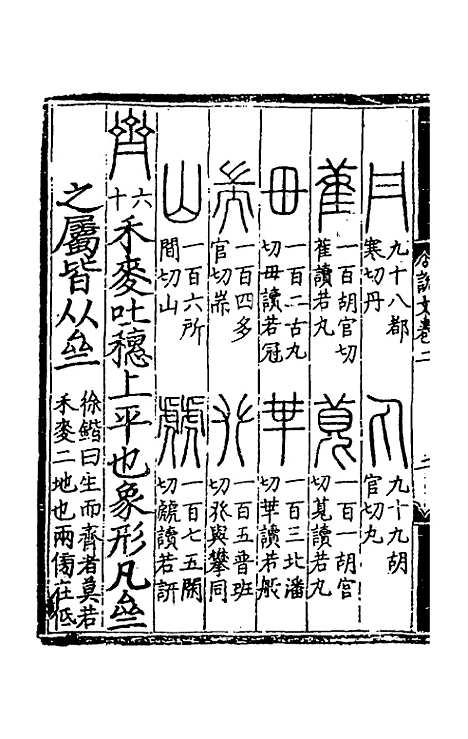 說文卷二
丹 九十八都寒切丹 丸 九十九胡官切丸
萑 一百胡官切萑讀若丸 莧 一百一胡官切莧讀若丸
毌 一百二古九切毌讀若冠 華 一百三北潘切華讀若般
耑 一百四多官切耑 𠬜 一百五普班切𠬜與攀同
山 一百六所間切山 虤 一百七五閑切虤讀若訮
齊 六十 禾麥吐穗上平也象形凡亝
之屬皆从亝 徐鍇曰生而齊者莫若禾麥二地也兩傍在低